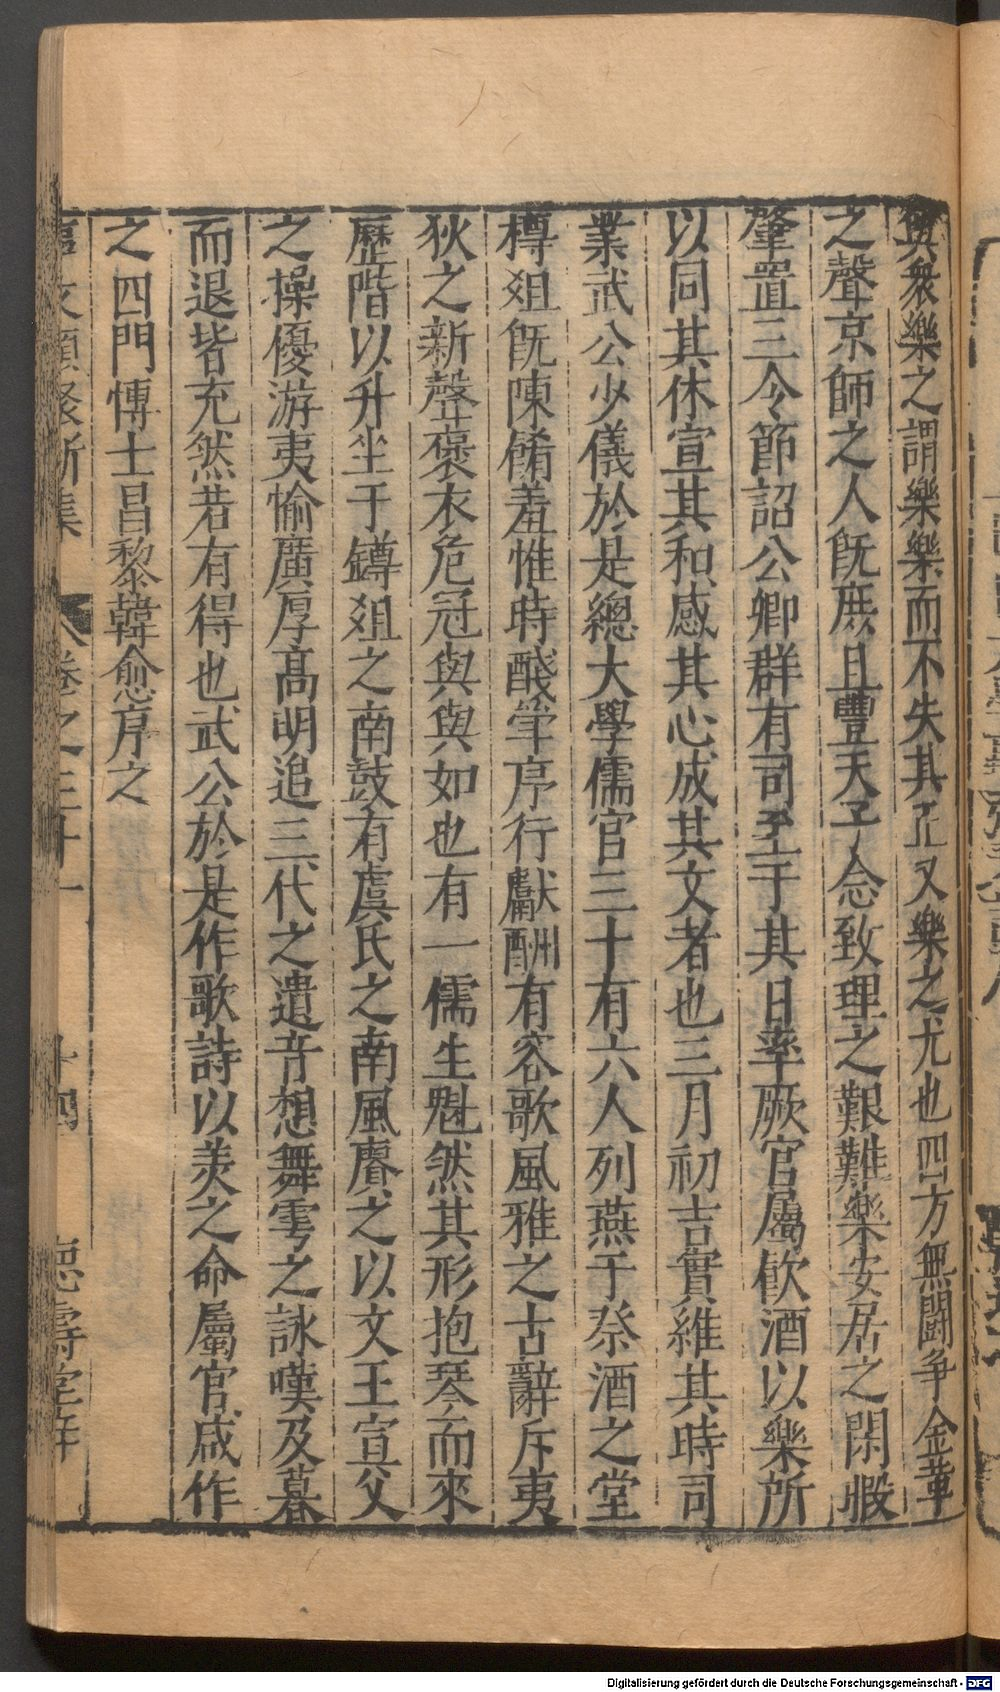 與衆樂之謂樂樂而不失其正又樂之尤也四方無鬪争金革
之聲京師之人旣庶且豐天子念致理之艱難樂安居之閑暇
肇置三令節詔公卿群有司至于其日率厥官屬飲酒以樂所
以同其休宣其和感其心成其文者也三月初吉實維其時司
業武公少儀於是總大學儒官三十有六人列燕于祭酒之堂
樽俎旣陳餚羞惟時醆斝序行獻酬有容歌風雅之古辭斥夷
狄之新聲褒衣危冠與與如也有一儒生魁然其形抱琴而來
歷階以升坐于罇俎之南鼓有虞氏之南風賡之以文王宣父
之操優游夷愉廣厚高明追三代之遺音想舞雩之詠嘆及暮
而退皆充然若有得也武公於是作歌詩以美之命屬官咸作
之四門博士昌黎韓愈序之
卷之三十一 十四
Digitalisierung gefördert durch die Deutsche Forschungsgemeinschaft - DFG